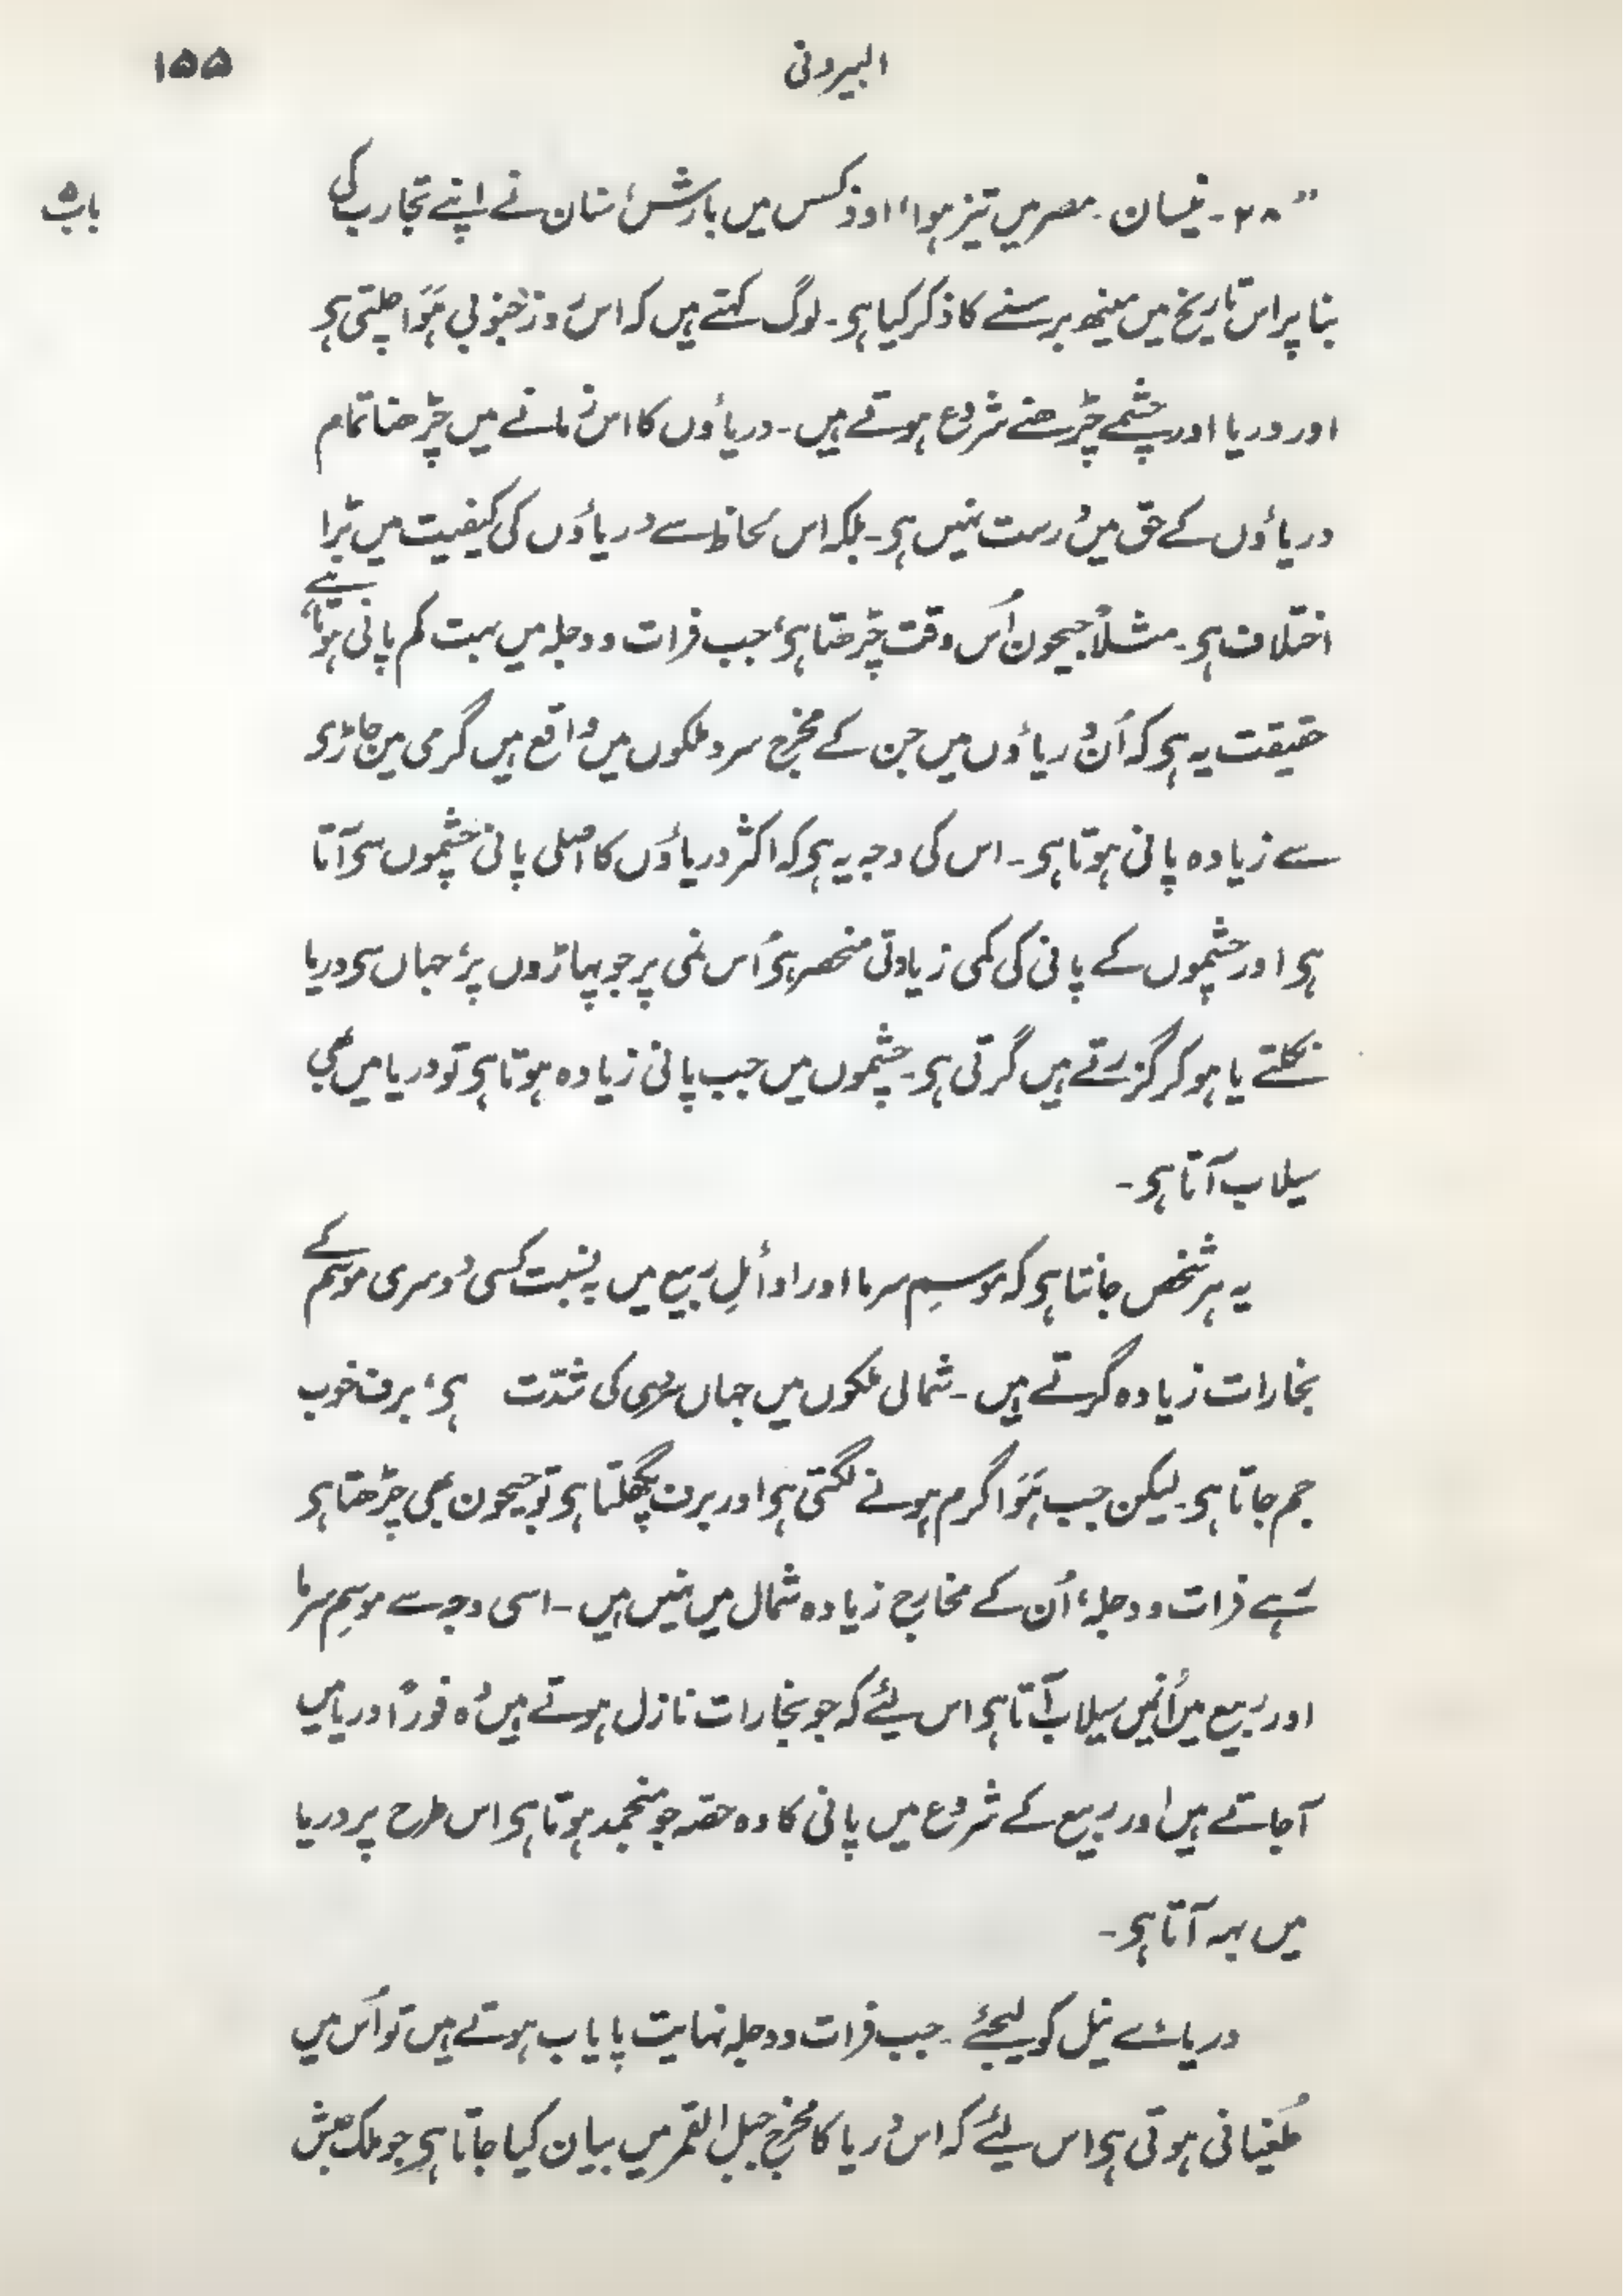 البیرونی ۱۵۵
باب۵
”۲۸۔ نیسان۔ مصر میں تیز ہوا، اوذکسس میں بارش، سنان نے اپنے تجارب کی
بنا پر اس تاریخ میں مینھ برسنے کا ذکر کیا ہی۔ لوگ کہتے ہیں کہ اس روز جنوبی ہَوَا چلتی ہی
اور دریا اور چشمے چڑھنے شروع ہوتے ہیں۔ دریاؤں کا اس زمانے میں چڑھنا تمام
دریاؤں کے حق میں درست نہیں ہی۔ بلکہ اس لحاظ سے دریاؤں کی کیفیت میں بڑا
اختلاف ہی۔ مثلاً جیحون اُس وقت چڑھتا ہی، جب فرات و دجلہ میں بہت کم پانی ہوتا ہے،
حقیقت یہ ہی کہ اُن دریاؤں میں جن کے مخرج سرد ملکوں میں واقع ہیں گرمی میں جاڑی
سے زیادہ پانی ہوتا ہی۔ اس کی وجہ یہ ہی کہ اکثر دریاؤں کا اصلی پانی چشموں سی آتا
ہی اور چشموں کے پانی کی کمی زیادتی منحصر ہی اُس نمی پر جو پہاڑوں پر، جہاں سی دریا
نکلتے یا ہو کر گزرتے ہیں گرتی ہی۔ چشموں میں جب پانی زیادہ ہوتا ہی تو دریا میں بھی
سیلاب آتا ہی۔
یہ ہر شخص جانتا ہی کہ موسمِ سرما اور اوائلِ ربیع میں بہ نسبت کسی دوسری موسم کے
بخارات زیادہ گرتے ہیں۔ شمالی ملکوں میں جہاں سردی کی شدّت ہی، برف خوب
جم جاتا ہی۔ لیکن جب ہَوَا گرم ہونے لگتی ہی اور برف پگھلتا ہی تو جیحون بھی چڑھتا ہی
رہے فرات و دجلہ، اُن کے مخارج زیادہ شمال میں نہیں ہیں۔ اسی وجہ سے موسمِ سرما
اور ربیع میں اُنہیں سیلاب آتا ہی اس لیٔے کہ جو بخارات نازل ہوتے ہیں وہ فوراً دریا میں
آجاتے ہیں اور ربیع کے شروع میں پانی کا وہ حصّہ جو منجمد ہوتا ہی اس طرح پر دریا
میں بہہ آتا ہی۔
دریائے نیل کو لیجئے۔ جب فرات و دجلہ نہایت پایاب ہوتے ہیں تو اُس میں
طُغیانی ہوتی ہی اس لیٔے کہ اس دریا کا مخرج جبل القمر میں بیان کیا جاتا ہی جو ملک حبش